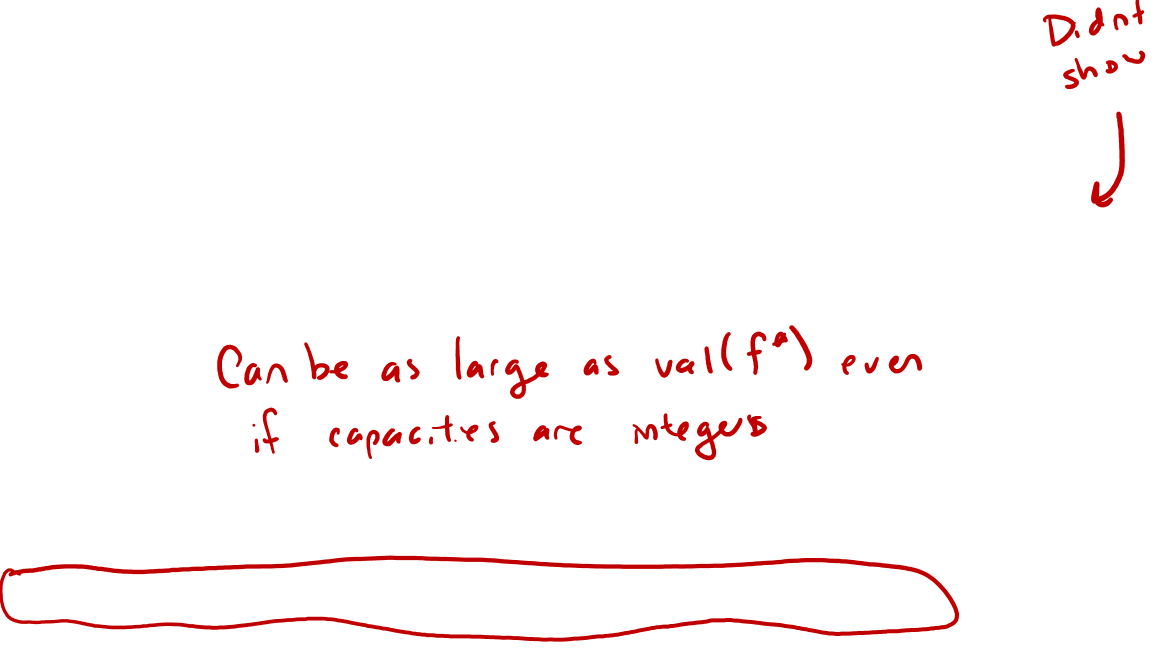 Didnt
show
Can be as large as val(f*) even
if capacities are integers